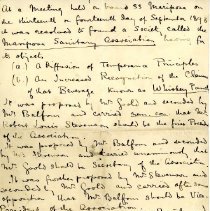 At a Meeting held on board SS Mariposa on
the thirteenth or fourteenth day of September 1893
it was resolved to found a Society called the
Mariposa Sanitary Association having for
its objects
(a) A Diffusion of Temperance Principles
(b) An Increased Recognition of the Claims
of that Beverage known as Whiskey Punch
It was proposed by Mr Gold and seconded by
Mr Balfour and carried that Mr
Robert Louis Stevenson should be the first President
of the Association.
It was proposed by Mr Balfour and seconded
by Mr Stevenson and carried that
Mr Gold should be Secretary of the Association
It was further proposed by Mr Stevenson and
seconded by Mr Gold and carried after some
opposition that Mr Balfour should be Vice
President of the Association